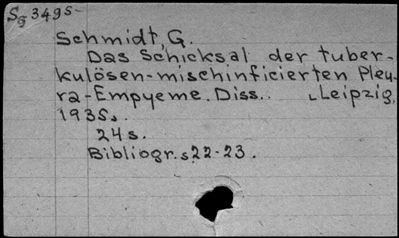 S 349s-
Schmidt, G.
Das Schicksal der tuber-
kulösen-mischinficierten Pleu-
ra-Empyeme. Diss.. Leipzig,
1935.
24s.
Bibliogr. s22-23.